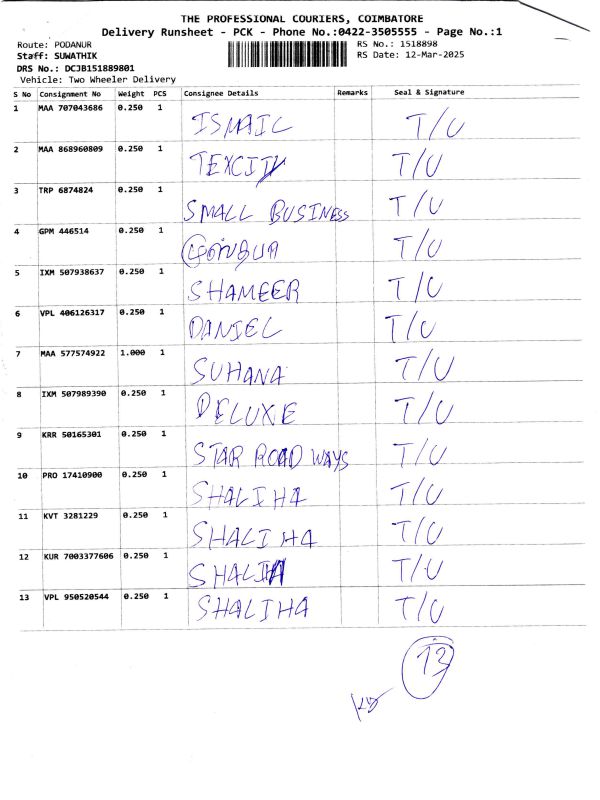 THE PROFESSIONAL COURIERS, COIMBATORE
Delivery Runsheet - PCK - Phone No.:0422-3505555 - Page No.:1
Route: PODANUR
RS No.: 1518898
Staff: SUWATHIK
RS Date: 12-Mar-2025
DRS No.: DCJB151889801
Vehicle: Two Wheeler Delivery
S No Consignment No Weight PCS Consignee Details Remarks Seal & Signature
1 MAA 707043686 0.250 1 ISMAIL T/U
2 MAA 868960809 0.250 1 TEXCITY T/U
3 TRP 6874824 0.250 1 SMALL BUSINESS T/U
4 GPM 446514 0.250 1 T/U
5 IXM 507938637 0.250 1 SHAMEER T/U
6 VPL 406126317 0.250 1 DANIEL T/U
7 MAA 577574922 1.000 1 SUHANA T/U
8 IXM 507989390 0.250 1 DELUXE T/U
9 KRR 50165301 0.250 1 STAR ROAD WAYS T/U
10 PRO 17410900 0.250 1 SHALIHA T/U
11 KVT 3281229 0.250 1 SHALIHA T/U
12 KUR 7003377606 0.250 1 SHALIHA T/U
13 VPL 950520544 0.250 1 SHALIHA T/U
13